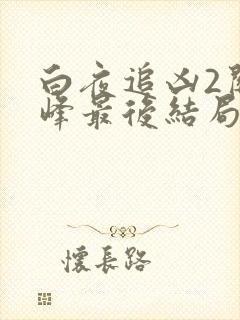 白夜追凶2關
峰最後結局
懷長路